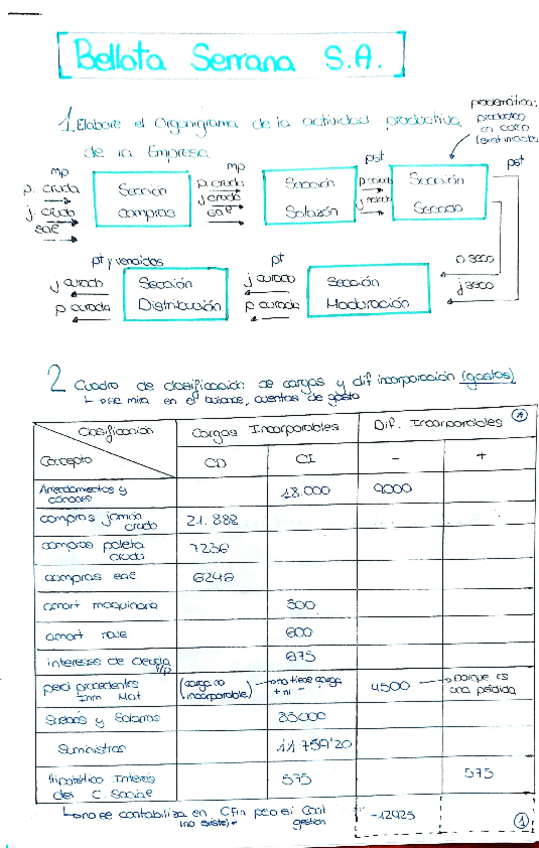 Bellota Serrana S.A.
1. Elabore el Organigrama de la actividad productiva
de la Empresa
problemática:
productos
en curso
pst
pst
mp
p. cruda
j. crudo
sae
Sección
Compras
mp
p. cruda
j. crudo
sae
Sección
Salazón
p. salada
j. salado
Sección
Secado
p. seca
j. seco
pt y vendidos
j curado
p curada
Sección
Distribución
pt
j curado
p curada
Sección
Maduración
2 Cuadro de clasificación de cargas y dif incorporación (gastos)
se mira en el balance, cuentas de gasto
Clasificación
Concepto
Cargas Incorporables
Dif. Incorporables
CD
CI
-
+
Arrendamientos y
cánones
18.000
9000
compras jamón
crudo
21.888
compras paleta
cruda
7236
compras sae
6248
amort maquinaria
500
amort nave
600
intereses de deuda
675
perd procedentes
Inm Mat
(carga no
incorporable)
no tiene carga
+ ni -
4500
porque es
una pérdida
Sueldos y Salarios
35000
Suministros
11 759'20
Hipotético Interés
del C. Social
575
575
no se contabiliza en CFin pero si Cont
(no existe)
gestión
-12925
1